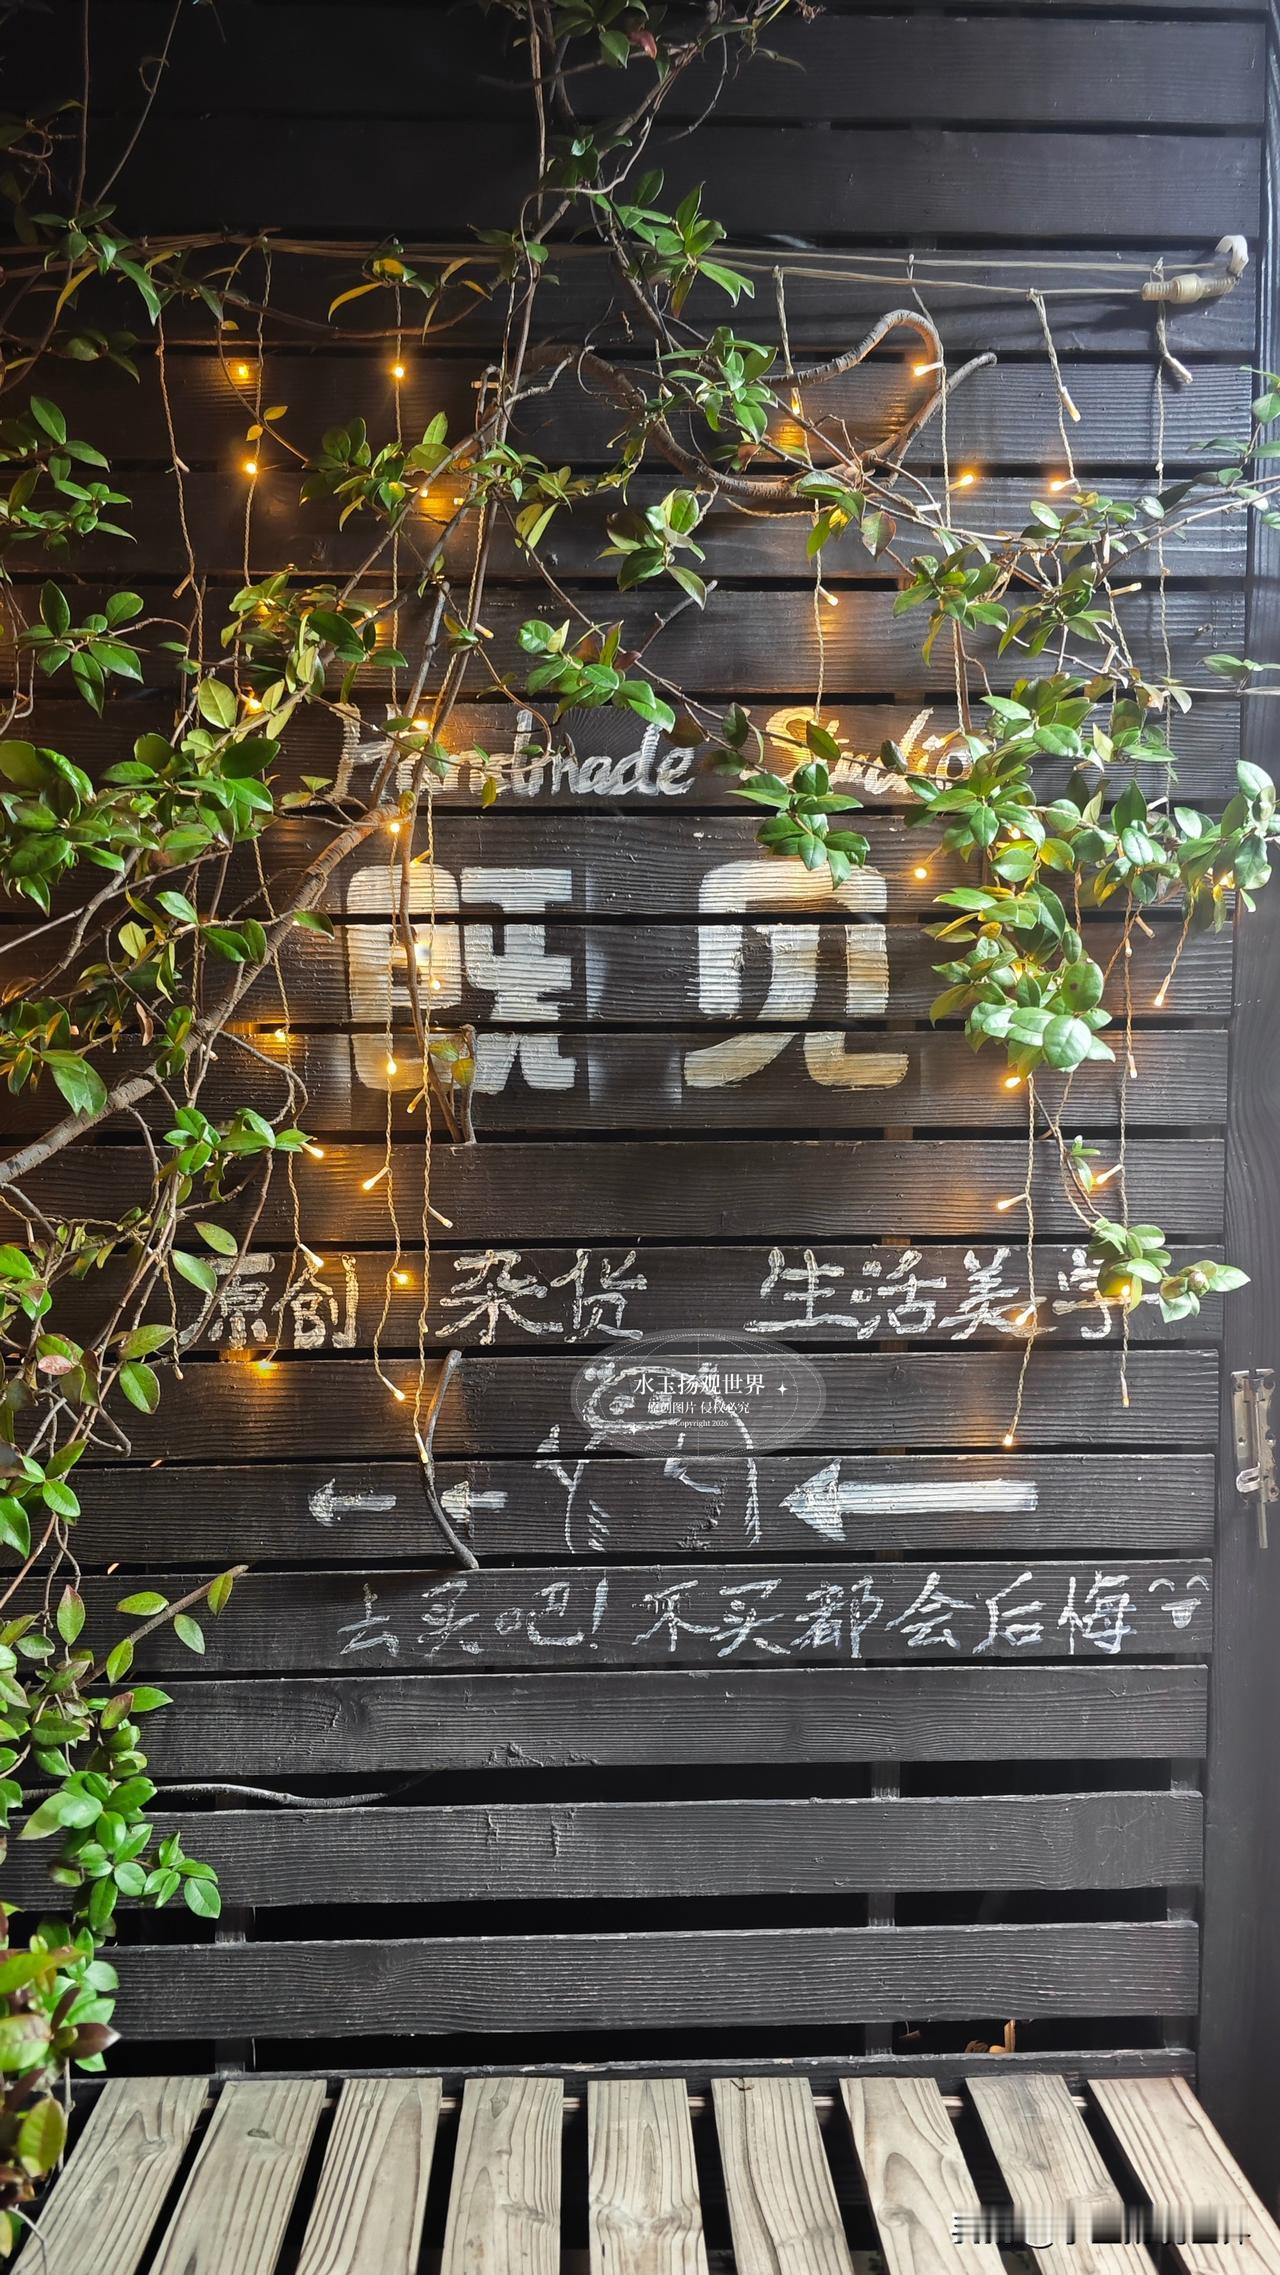 Handmade Studio
既见
原创 杂货 生活美学
水玉扬观世界
原创图片 侵权必究
Copyright 2026
去买吧！不买都会后悔